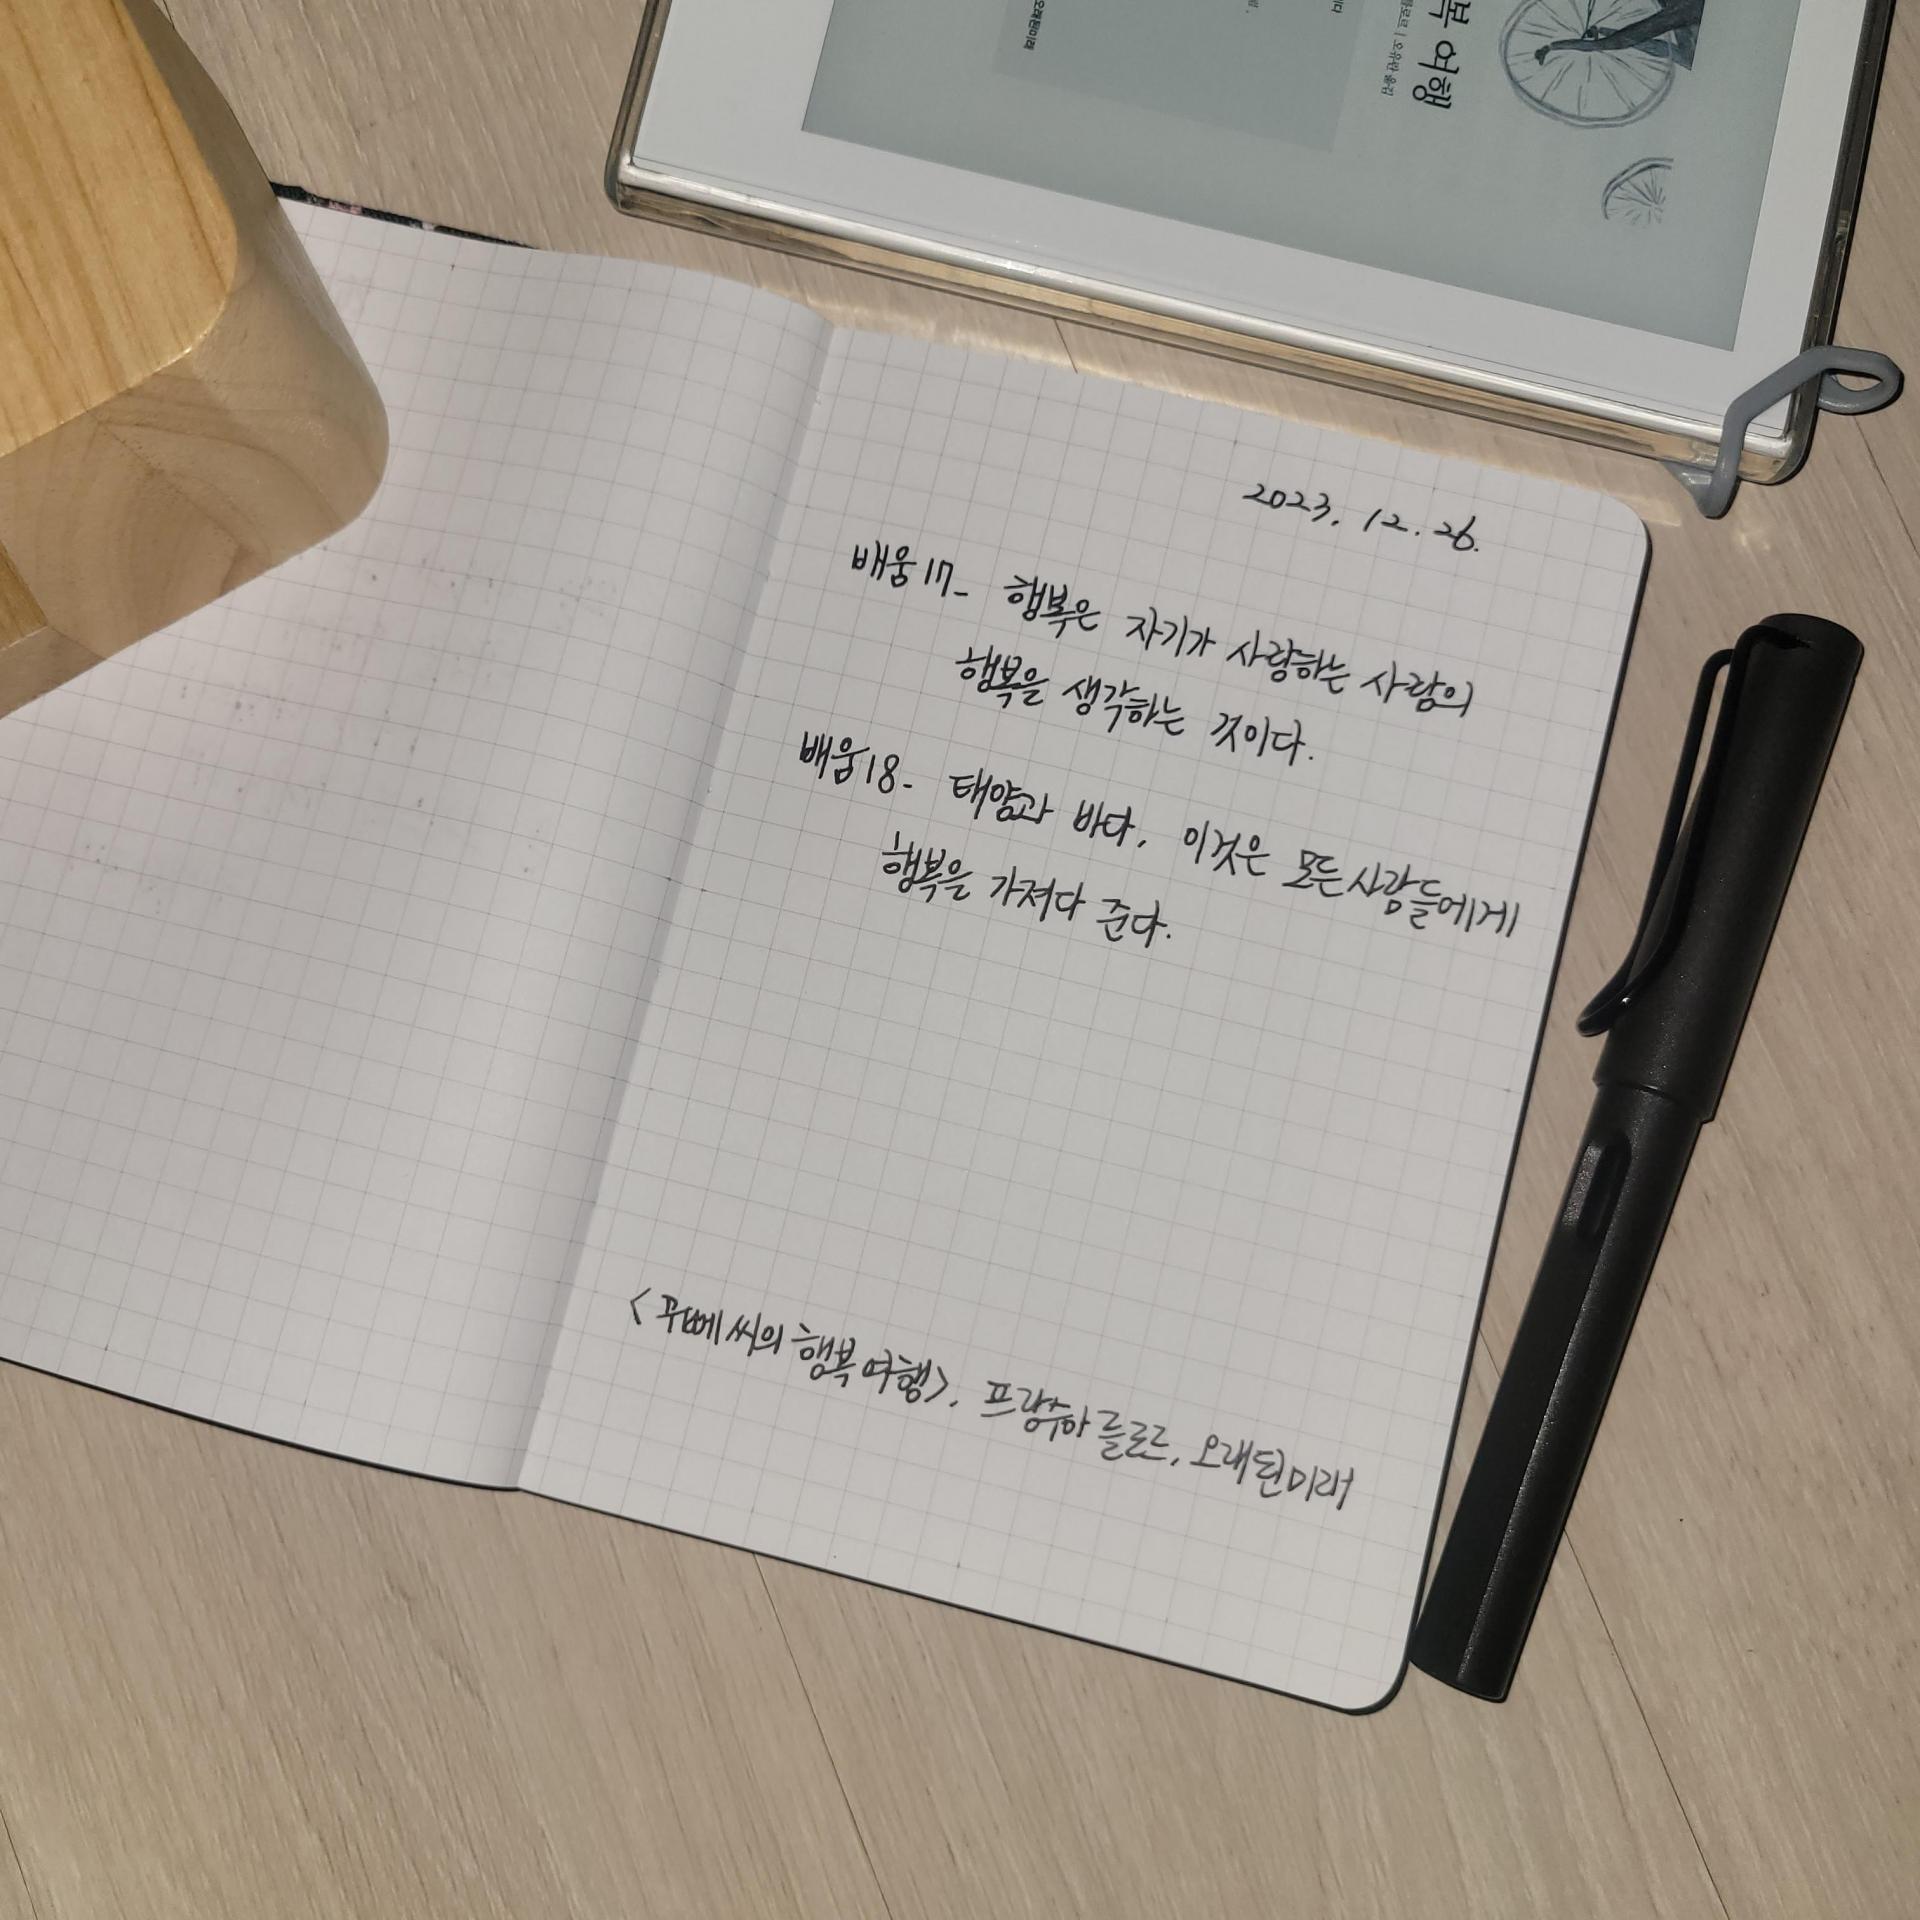 복 여행
오래된미래
2023. 12. 26.
배움17- 행복은 자기가 사랑하는 사람의
행복을 생각하는 것이다.
배움18- 태양과 바다, 이것은 모든 사람들에게
행복을 가져다 준다.
<꾸뻬 씨의 행복 여행>, 프랑수아 를로르, 오래된미래